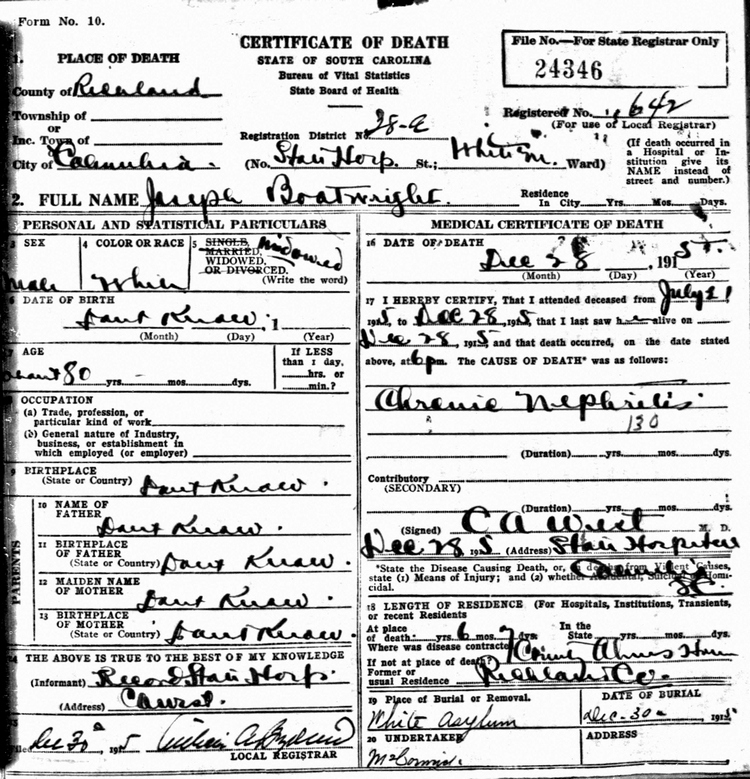 Form No. 10.
CERTIFICATE OF DEATH
STATE OF SOUTH CAROLINA
Bureau of Vital Statistics
State Board of Health
File No.—For State Registrar Only
24346
1. PLACE OF DEATH
County of Richland
Township of
or
Inc. Town of
City of Columbia
Registration District No. 38-a
Registered No. 642
(For use of Local Registrar)
(No. State Hosp. St.; Ward)
(If death occurred in a Hospital or Institution give its NAME instead of street and number.)
2. FULL NAME Joseph Boatwright.
Residence In City Yrs. Mos. Days.
PERSONAL AND STATISTICAL PARTICULARS
3 SEX
male
4 COLOR OR RACE
White
5 SINGLE, MARRIED, WIDOWED, OR DIVORCED.
Widowed
(Write the word)
6 DATE OF BIRTH
Dont Know, 1
(Month) (Day) (Year)
7 AGE
about 80 yrs. mos. dys.
If LESS than 1 day, hrs. or min.?
8 OCCUPATION
(a) Trade, profession, or particular kind of work
(b) General nature of Industry, business, or establishment in which employed (or employer)
9 BIRTHPLACE
(State or Country) Dont Know.
PARENTS
10 NAME OF FATHER
Dont Know.
11 BIRTHPLACE OF FATHER
(State or Country) Dont Know.
12 MAIDEN NAME OF MOTHER
Dont Know.
13 BIRTHPLACE OF MOTHER
(State or Country) Dont Know.
14 THE ABOVE IS TRUE TO THE BEST OF MY KNOWLEDGE
(Informant) Record State Hosp.
(Address)
15
Filed Dec 30, 1915
LOCAL REGISTRAR
MEDICAL CERTIFICATE OF DEATH
16 DATE OF DEATH
Dec 28, 1915
(Month) (Day) (Year)
17 I HEREBY CERTIFY, That I attended deceased from July 21
1915, to Dec 28, 1915, that I last saw h alive on
Dec 28, 1915 and that death occurred, on the date stated
above, at 6 pm. The CAUSE OF DEATH* was as follows:
Chronic Nephritis
130
(Duration) yrs. mos. dys.
Contributory
(SECONDARY)
(Duration) yrs. mos. dys.
(Signed) C A West M. D.
Dec 28 1915 (Address) State Hospital
Columbia
SC
*State the Disease Causing Death, or, in deaths from Violent Causes, state (1) Means of Injury; and (2) whether Accidental, Suicidal or Homicidal.
18 LENGTH OF RESIDENCE (For Hospitals, Institutions, Transients, or recent Residents
At place of death yrs. 6 mos. 7 dys.
In the State yrs. mos. dys.
Where was disease contracted
If not at place of death?
Former or usual Residence Richland Co.
19 Place of Burial or Removal.
White Asylum
DATE OF BURIAL
Dec-30 1915
20 UNDERTAKER
McCormick.
ADDRESS